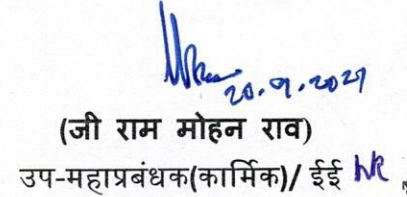 20.9.2021
(जी राम मोहन राव)
उप-महाप्रबंधक(कार्मिक)/ ईई